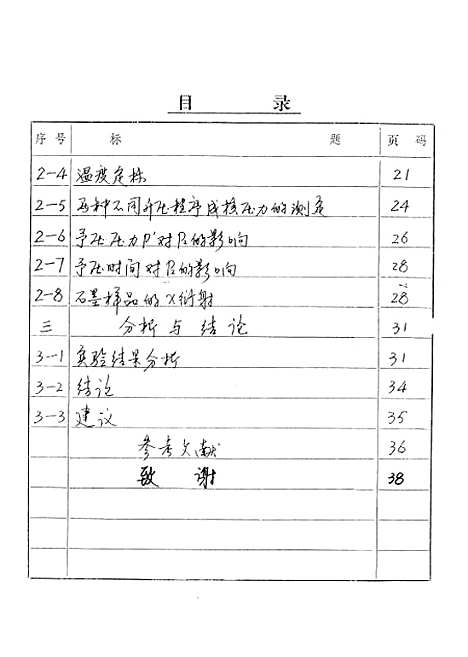 目 录
序号 标 题 页码
2-4 温度定标 21
2-5 两种不同升压程序成核压力的测定 24
2-6 予压压力P'对P的影响 26
2-7 予压时间对P的影响 28
2-8 石墨样品的X衍射 28
三 分析与结论 31
3-1 实验结果分析 31
3-2 结论 34
3-3 建议 35
参考文献 36
致 谢 38